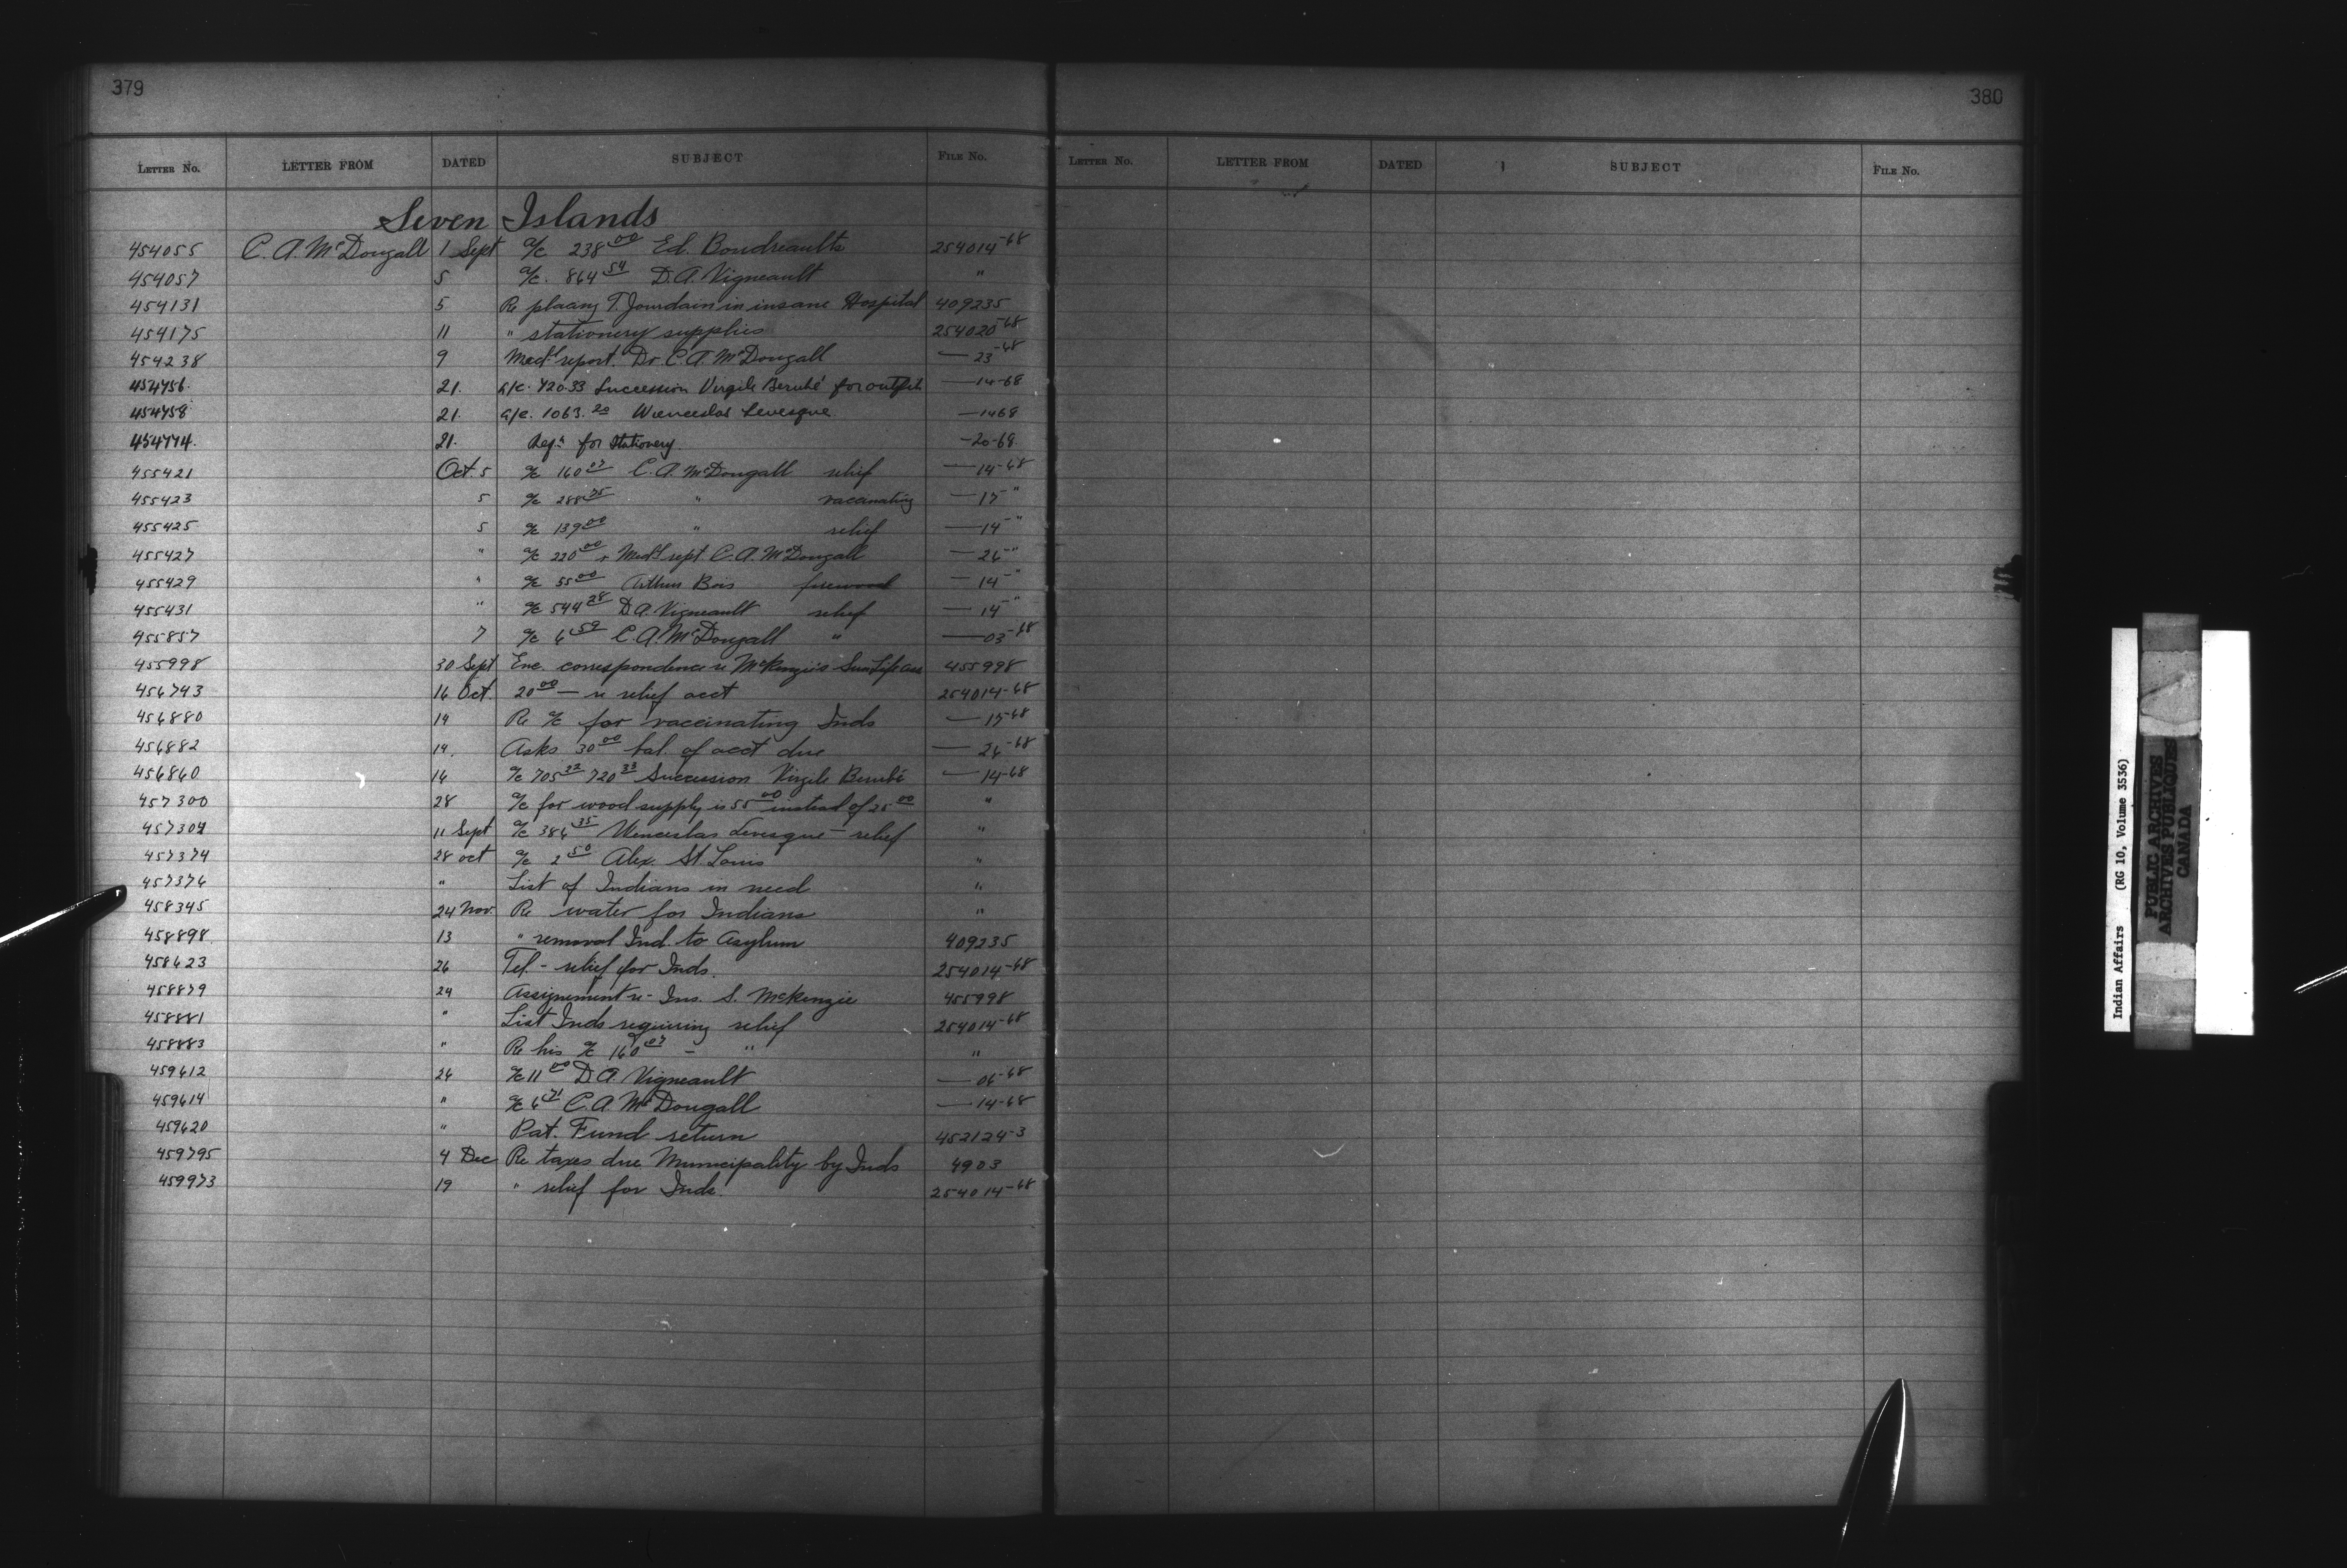 379
380
LETTER No. LETTER FROM DATED SUBJECT FILE No.
LETTER No. LETTER FROM DATED SUBJECT FILE No.
Seven Islands
454055 C. A. McDougall 1 Sept a/c 238 00 Ed. Boudreault 254014-68
454057 5 a/c. 864 54 D. A. Vigneault "
454131 5 Re placing T. Jourdain in insane Hospital 409235
454175 11 " stationery supplies 254020-68
454238 9 Med'l report. Dr. C. A. McDougall — 23-68
454756 21. a/c. 720.33 Succession Virgile Berubé for outfit — 14-68
454758 21. a/c. 1063.20 Wenceslas Levesque — 1468
454774. 21. Reqn for Stationery. — 20-68
455421 Oct. 5 a/c 160 07 C. A. McDougall relief — 14-68
455423 5 a/c 288 75 " vaccinating — 15 "
455425 5 a/c 139 00 " relief — 14 "
455427 " a/c 220 00 + Med'l rept C. A. McDougall — 26 "
455429 " a/c 55 00 Arthur Bois firewood — 14 "
455431 " a/c 544 28 D. A. Vigneault relief — 14 "
455857 7 a/c 6 59 C. A. McDougall " — 03-68
455998 30 Sept Enc. correspondence re McKenzie's Sun Life Ass 455998
456743 16 Oct. 20 00 — re relief acct 254014-68
456880 14 Re a/c for vaccinating Inds — 15-68
456882 14. Asks 30 00 bal. of acct due — 26-68
456860 16 a/c 705 22 720 33 Succession Virgile Berubé — 14-68
457300 28 a/c for wood supply is 55 00 instead of 25 00 "
457304 11 Sept a/c 386 35 Wenceslas Levesque — relief "
457374 28 oct a/c 2 50 Alex. St. Louis "
457376 " List of Indians in need "
458345 24 Nov. Re water for Indians "
458898 13 " removal Ind. to Asylum 409235
458623 26 Tel - relief for Inds. 254014-68
458879 24 Assignement re - Ins. S. McKenzie 455998
458881 " List Inds requiring relief 254014-68
458883 " Re his a/c 160 07 - " "
459612 26 a/c 11 00 D. A. Vigneault — 06-68
459614 " a/c 6 71 C. A. McDougall — 14-68
459620 " Pat. Fund return 452124-3
459795 4 Dec Re taxes due Municipality by Inds 4903
459973 19 " relief for Inds. 254014-68
Indian Affairs (RG 10, Volume 3536)
PUBLIC ARCHIVES
ARCHIVES PUBLIQUES
CANADA